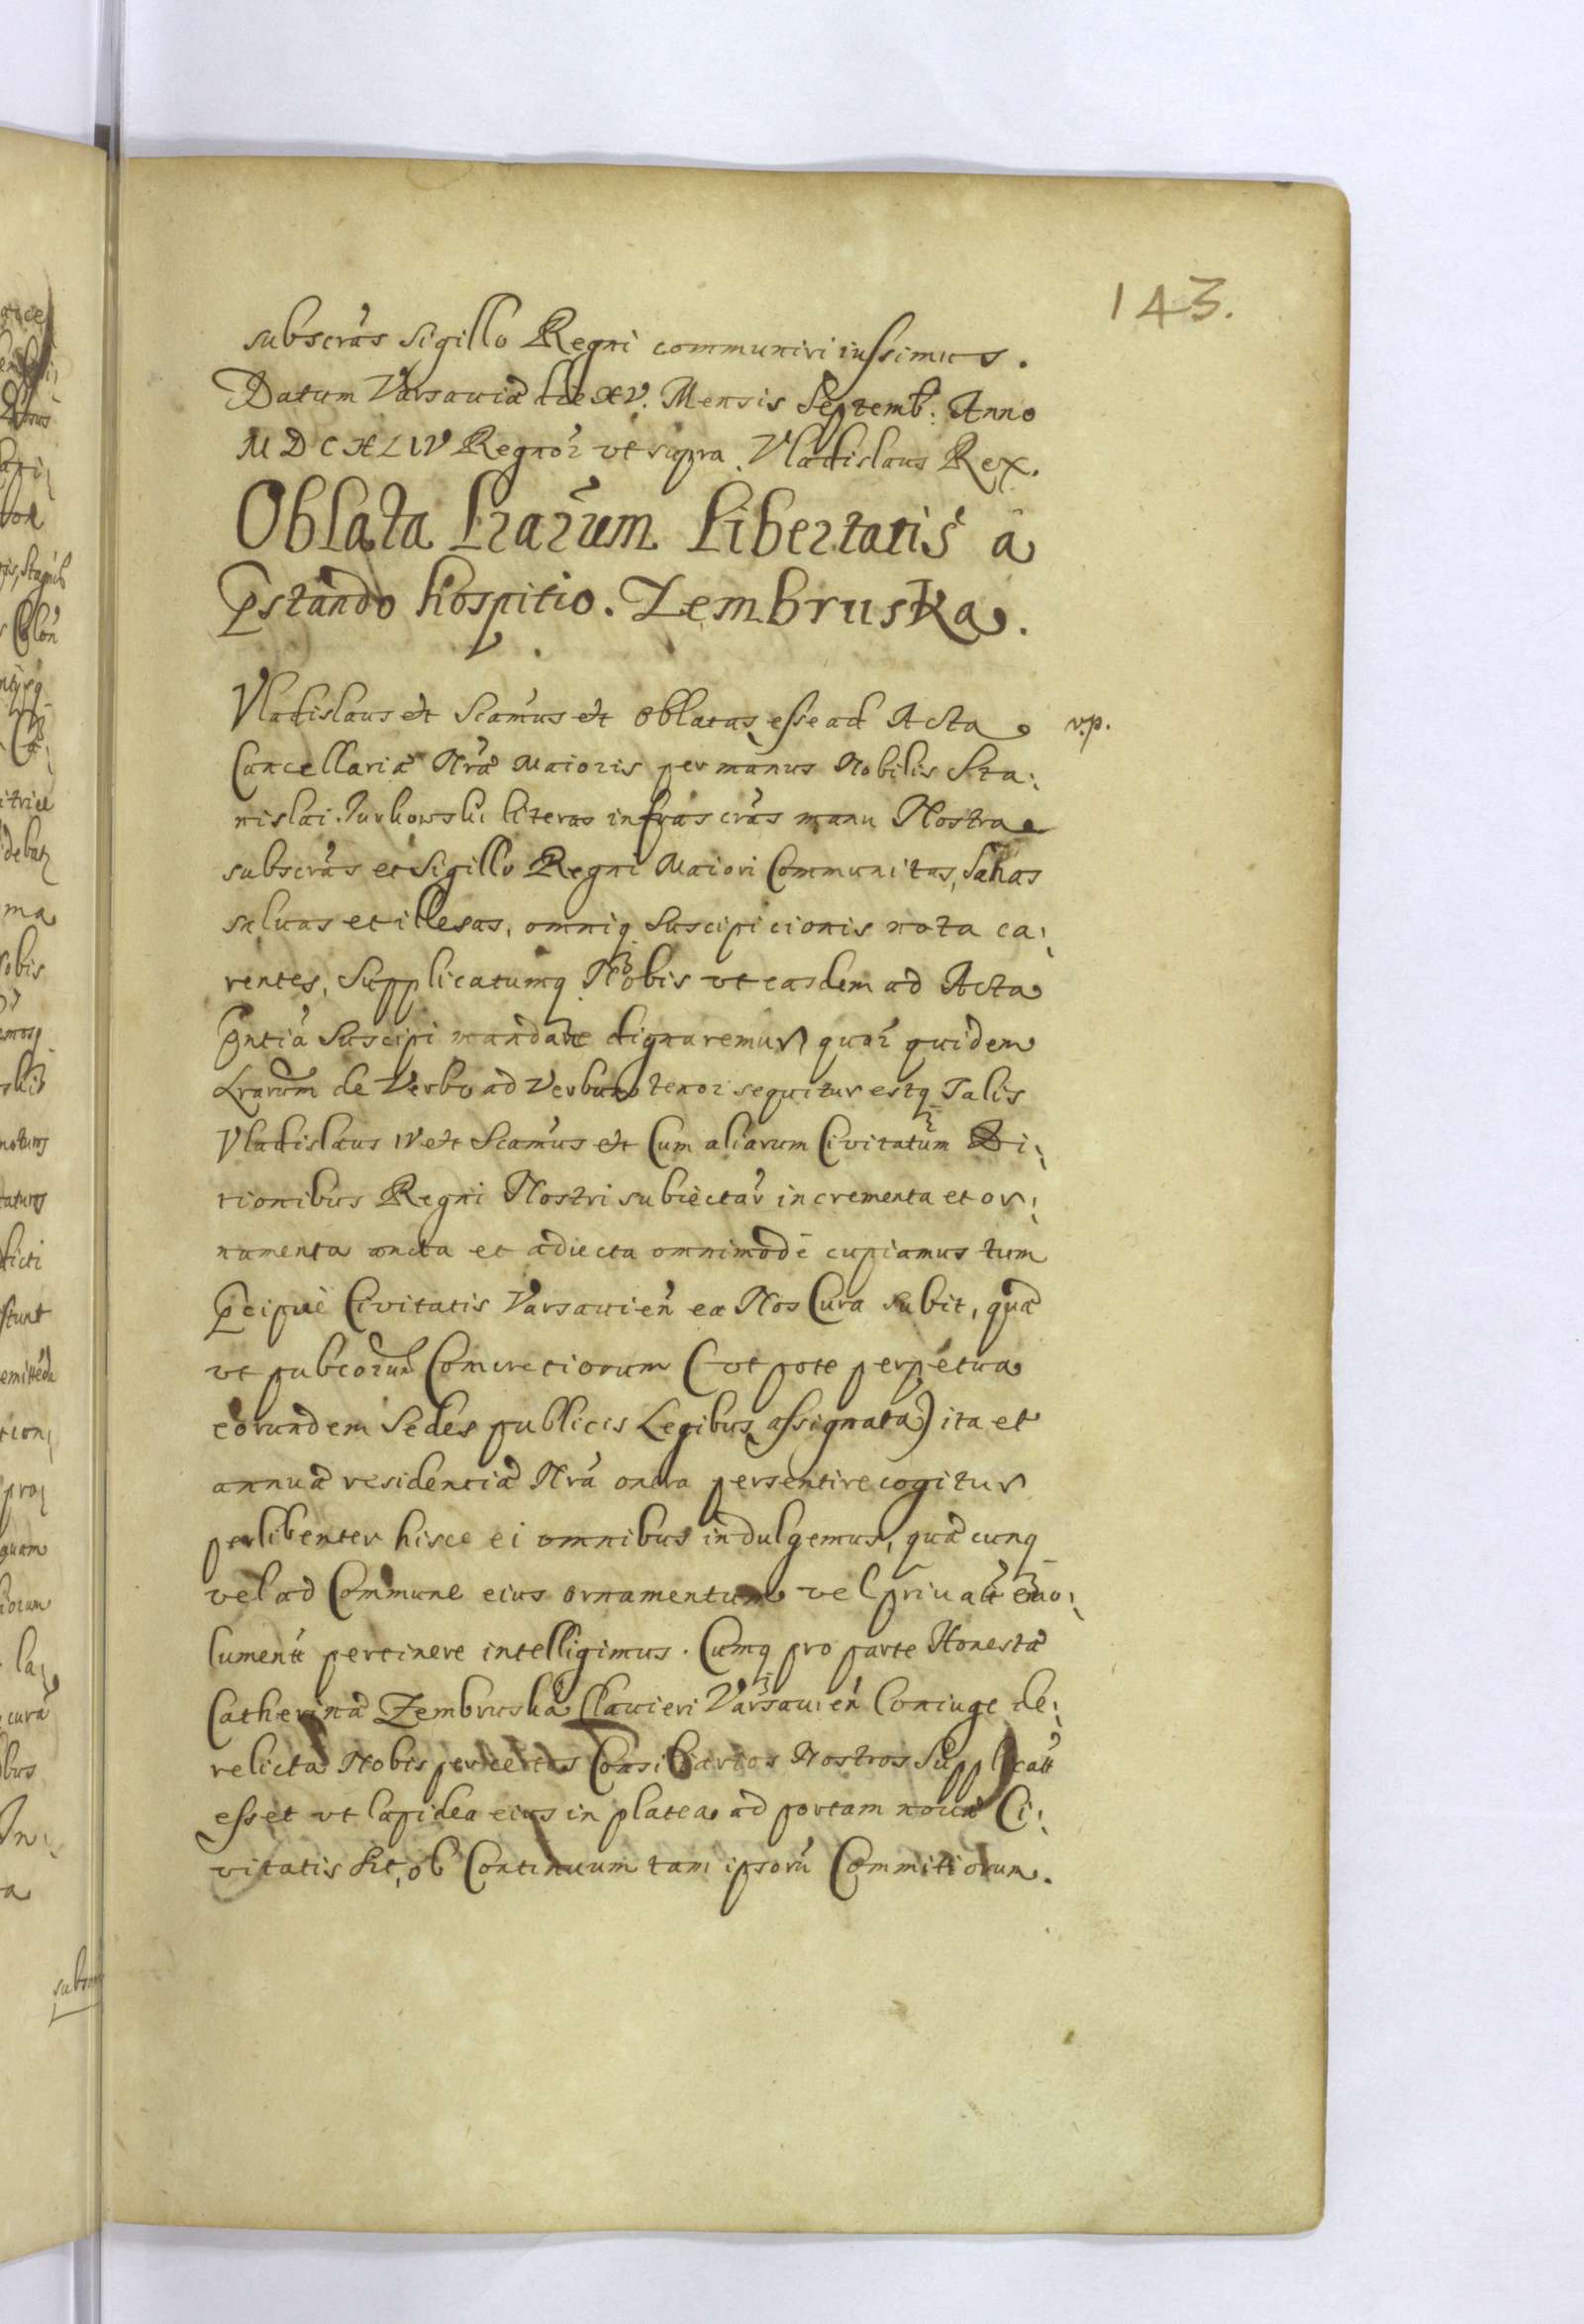 143.
subscrãs Sigillo Regni communiri iussimus.
Datum Varsaviæ die XV. Mensis Septemb: Anno
MDCXLIV Regnor̃ ut supra. Vladislaus Rex.
Oblata Lrarum Libertatis â
Pstando hospitio. Zembruska.
Vladislaus etc Scamus etc Oblatas esse ad Acta v.p.
Cancellariæ Nræ Maioris per manus Nobilis Sta:
nislai Jurkowski literas infrascrãs manu Nostra
subscrãs et Sigillo Regni Maiori Communitas, Sanas
salvas et illesas, omniq Suscipicionis nota ca:
rentes, Supplicatumq Nobis ut easdem ad Acta
Pntia Suscipi mandare dignaremur quor̃ quidem
Lrarum de Verbo ad Verbum tenor sequitur estq Talis
Vladislaus IV etc Scamus etc Cum aliarum Civitatum Di:
tionibus Regni Nostri subiectar̃ incrementa et or:
namenta aucta et adiecta omnimodè cupiamus tum
Pcipuè Civitatis Varsavien̄ ea Nos Cura subit, quæ
ut pubcorum Comiciorum (utpote perpetua
eorundem Sedes publicis Legibus assignata) ita et
annuæ residentiæ Nræ onera persentire cogitur
perlibenter hisce ei omnibus indulgemus, quæcunq
vel ad Commune eius ornamentum vel privatū emo:
lumentū pertinere intelligimus. Cumq pro parte Honestæ
Catherinæ Zembruska Clavieri Varsavien̄ Coniuge de:
relictæ Nobis per certos Consiliarios Nostros Supplicatū
esset ut lapidea eius in platea ad portam novæ Ci:
vitatis sit, ob Continuum tam ipsorū Commitiorum.